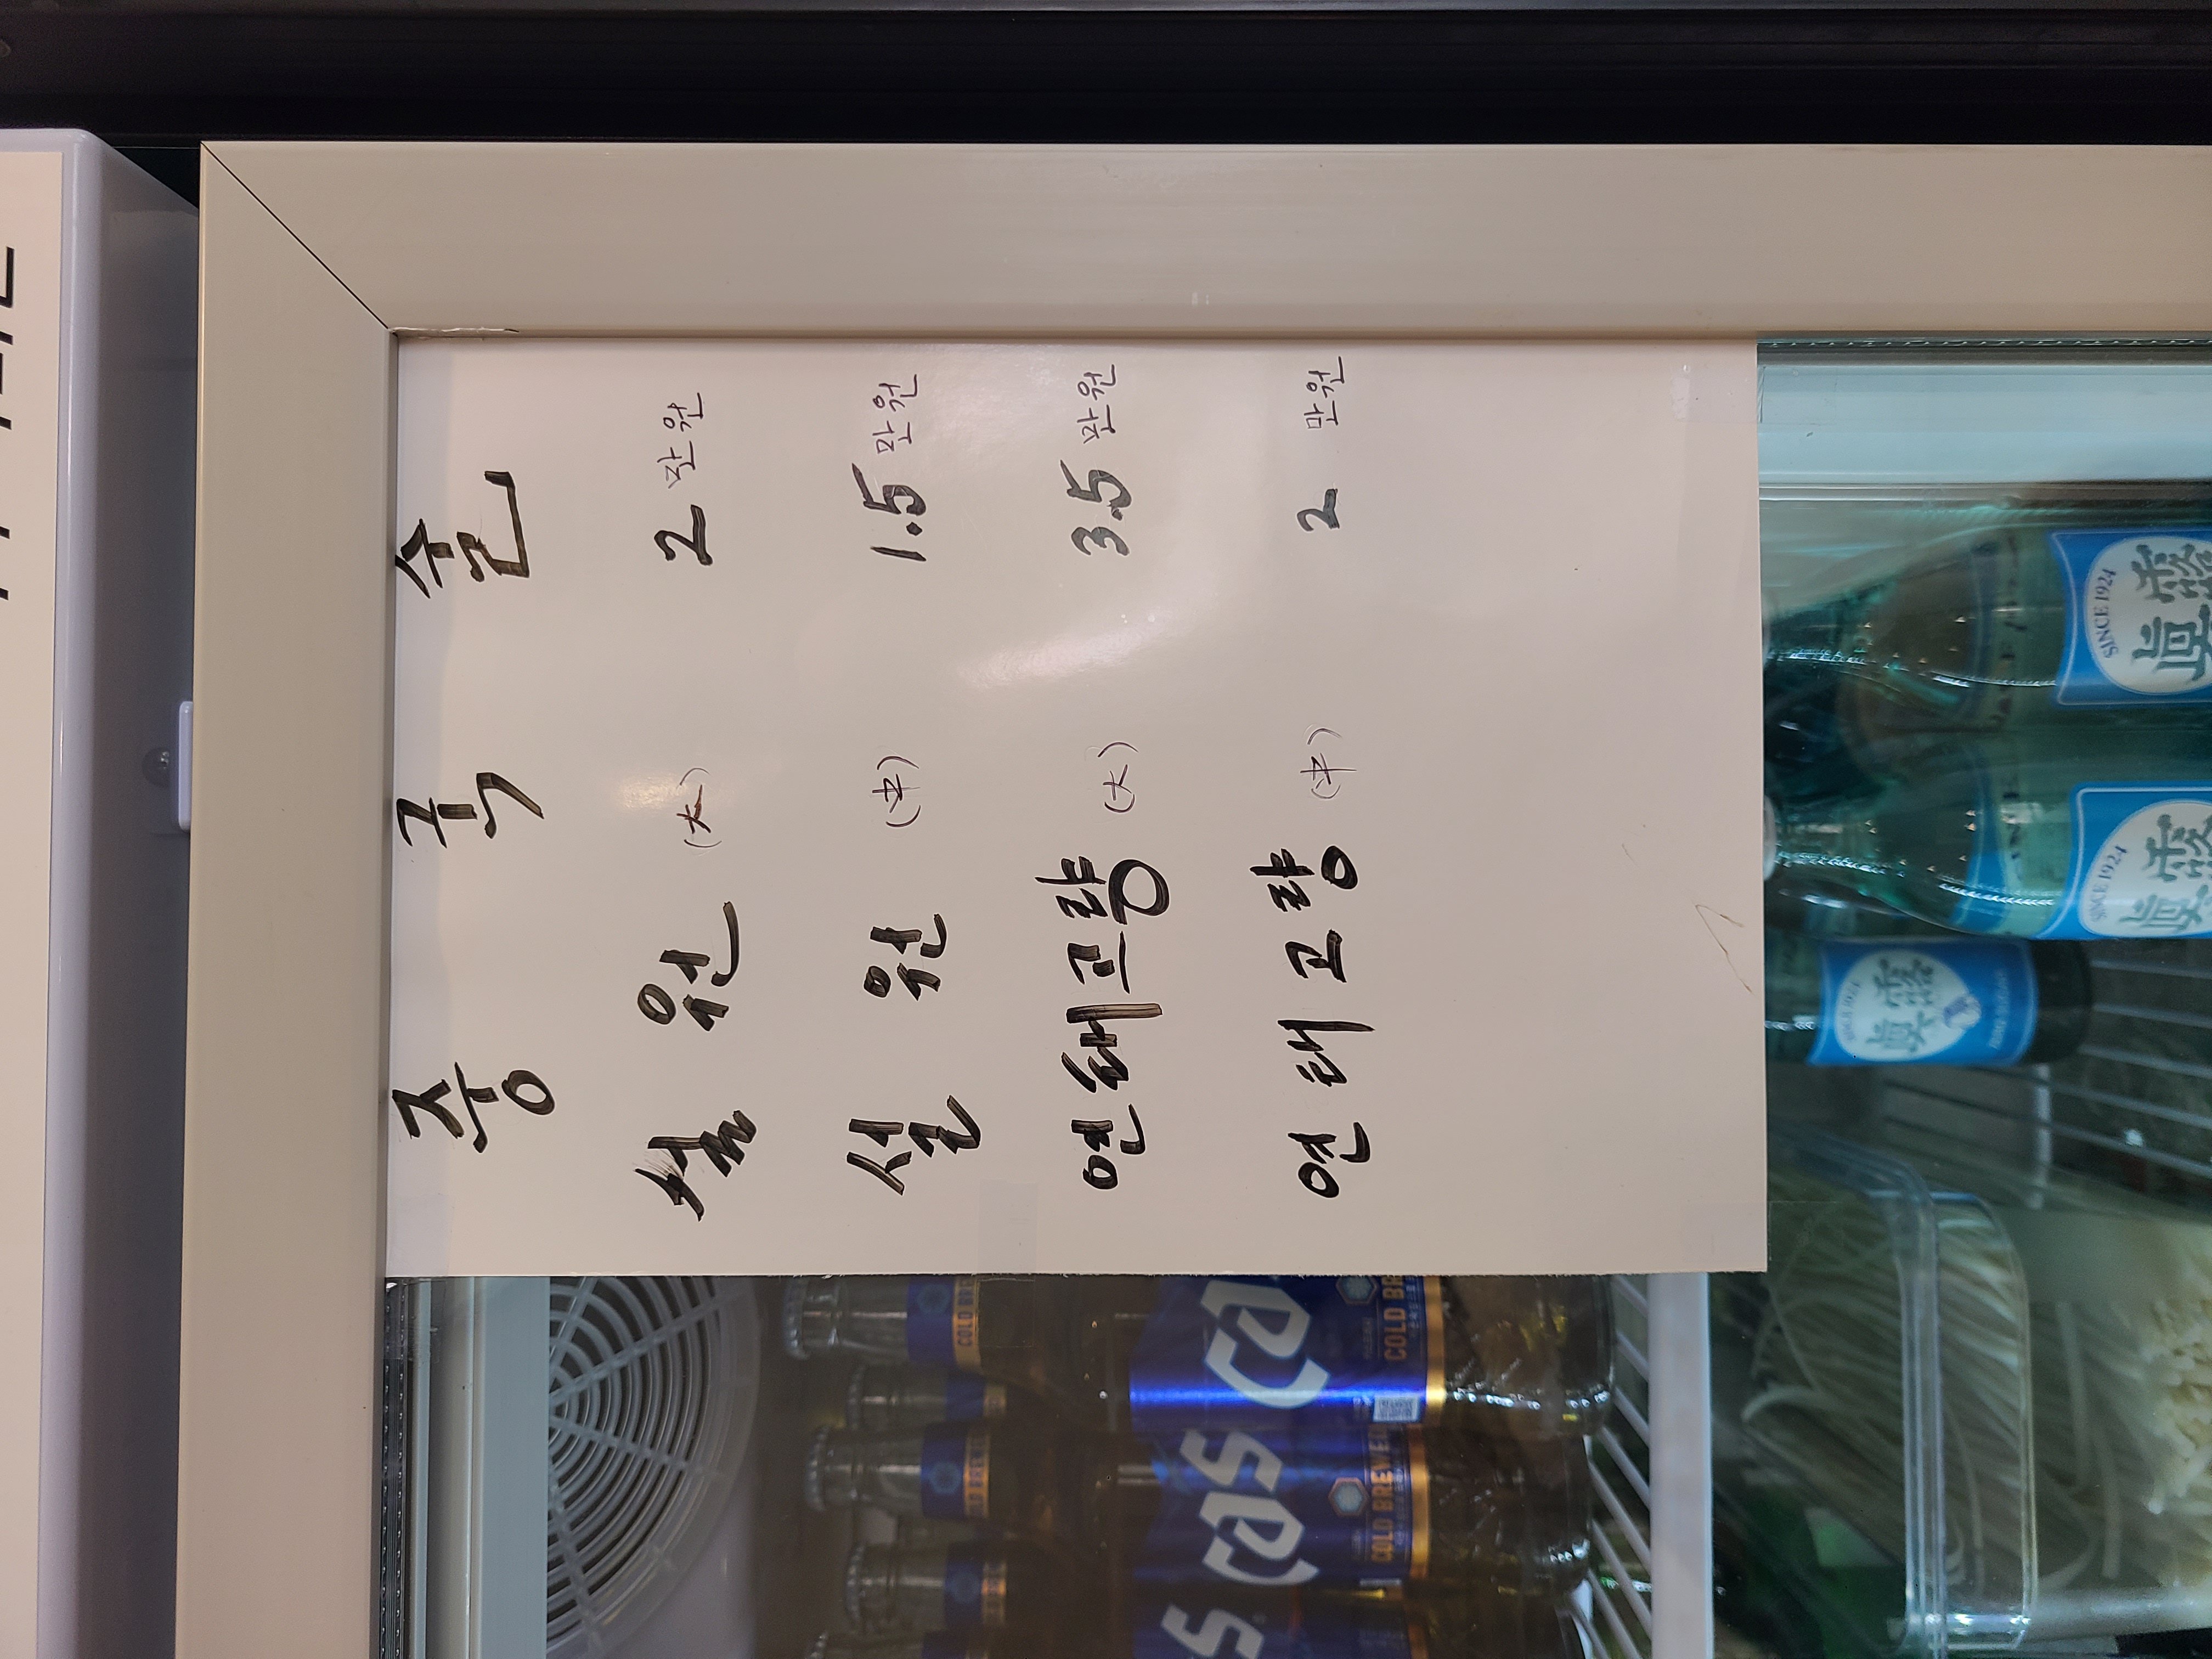 중국술
설원 (大) 2만원
설원 (中) 1.5만원
연태고량 (大) 3.5만원
연태고량 (中) 2만원
SINCE 1924
眞露
SINCE 1924
眞露
眞露
cass
COLD BREWED
cass
COLD BREWED